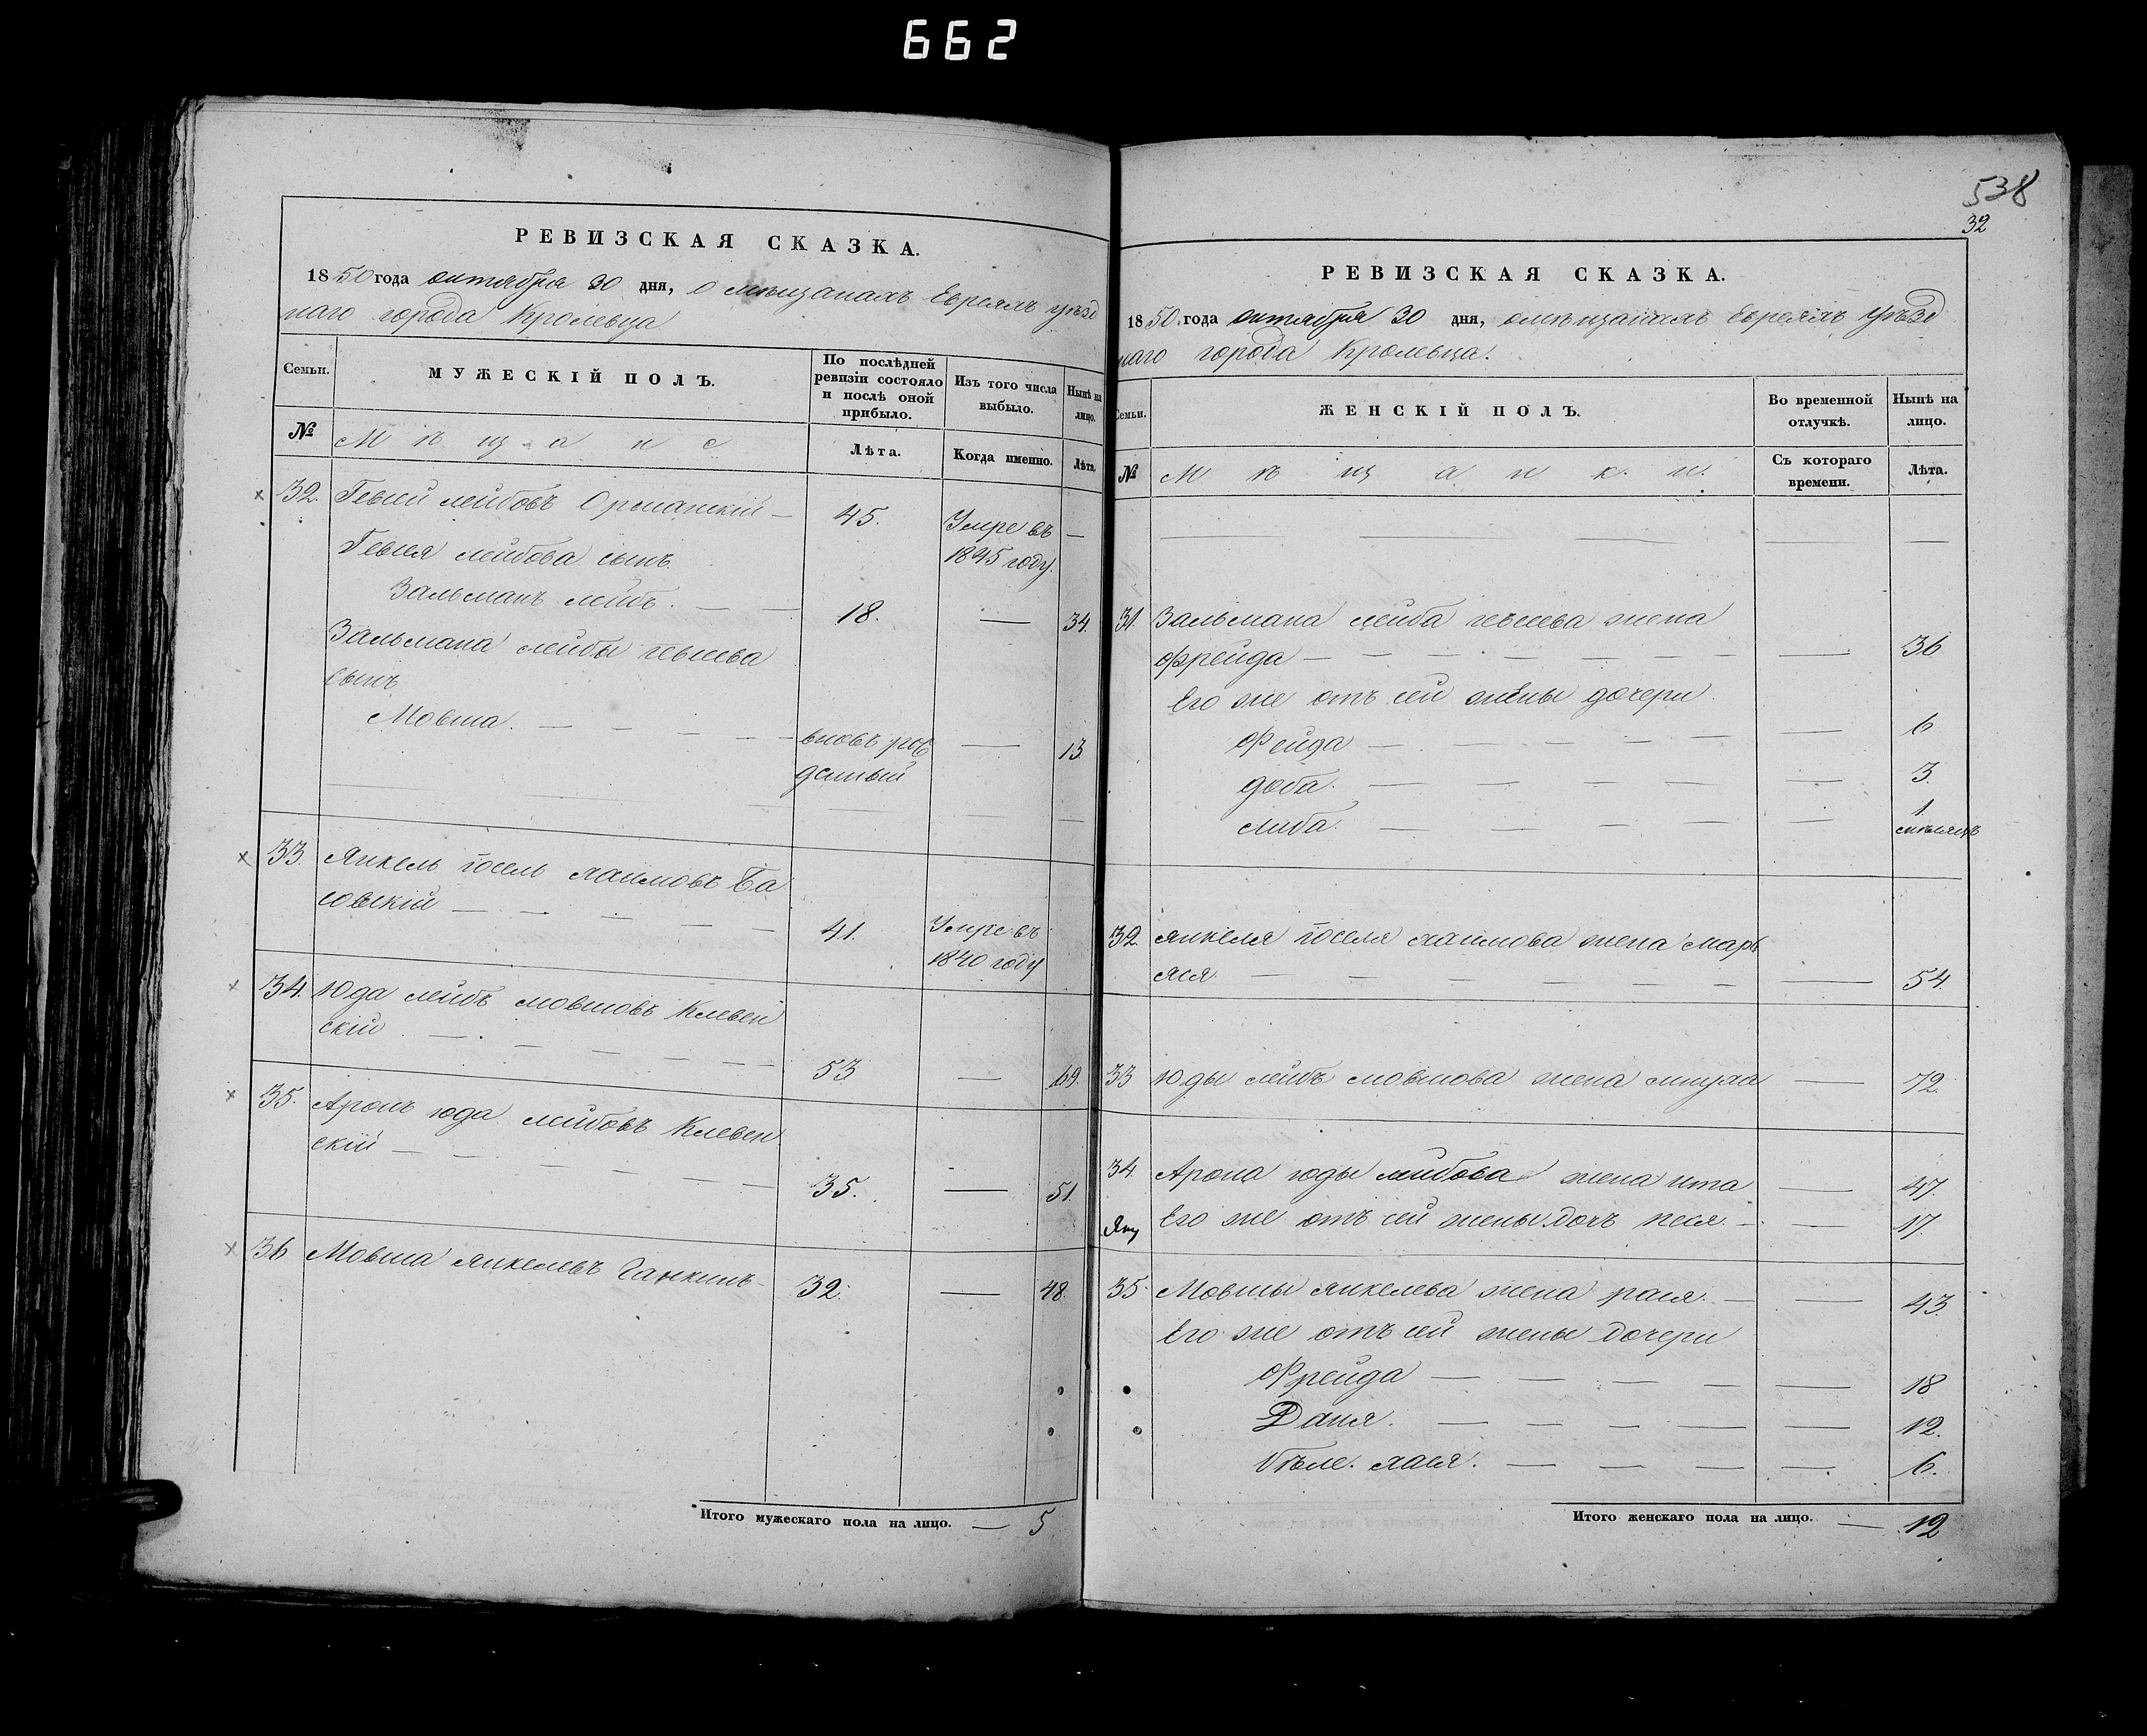 662
РЕВИЗСКАЯ СКАЗКА.
1850 года октября 30 дня, о мѣщанахъ Евреяхъ уѣзд
наго города Кролевца
Семьи.
МУЖЕСКІЙ ПОЛЪ.
По послѣдней ревизіи состояло и послѣ оной прибыло.
Изъ того числа выбыло.
Нынѣ на лицо.
№
Мѣщане
Лѣта.
Когда именно.
Лѣта.
32. лейбовъ — 45. Умре въ —
лейбова сынъ 1845 году.
Зальманъ лейбъ. — — 18. — 34.
Зальмана лейбы
сынъ
Мовша. — — — — — вновь рож — 13.
денный
33. Янкель іосель хаимовъ Ба
совскій — — — — — 41. Умре въ
1840 году
34. Юда лейбъ мовшовъ Клевен
скій — — — — — — 53 — 69.
35. Аронъ юда лейбовъ Клевен
скій — — — — — — 35. — 51.
36 Мовша янкелевъ Ганкинъ — 32. — 48.
Итого мужескаго пола на лицо. — 5
538
32
РЕВИЗСКАЯ СКАЗКА.
1850 года октября 30 дня, о мѣщанахъ Евреяхъ уѣзд
наго города Кролевца.
Семьи.
ЖЕНСКІЙ ПОЛЪ.
Во временной отлучкѣ.
Нынѣ на лицо.
№
Мѣщанки.
Съ котораго времени.
Лѣта.
31. Зальмана лейба жена
фрейда — — — — — — — — 36
Его же отъ сей жены дочери
Фейда — — — — — — 6
доба. — — — — — — 3.
либа. — — — — — 1.
мѣсяцъ
32. янкеля іоселя хаимова жена марь
яся. — — — — — — — 54.
33 юды лейбъ мовшова жена мнуха — 72.
34. Арона юды лейбова жена ита — 47.
Его же отъ сей жены дочь песя. — — 17.
35. Мовши янкелева жена рася. — — 43.
Его же отъ сей жены дочери
Фрейда — — — — — 18
Даня. — — — — — 12.
хася. — — — — — 6.
Итого женскаго пола на лицо. — 12